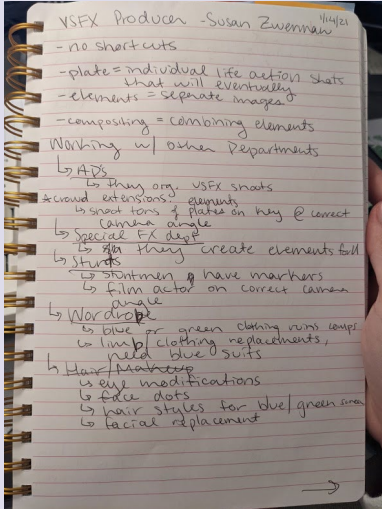 VSFX Producer - Susan Zwerman 1/14/21
- no shortcuts
- plate = individual life action shots
that will eventually
- elements = seperate images
- compositing = combining elements
Working w/ other Departments
↳ AD's
↳ they org. VSFX shots
* crowd extensions: elements
↳ shoot tons of plates on key @ correct
camera angle
↳ Special FX dept
↳ they create elements for
↳ Stunts
↳ stuntmen have markers
↳ film actor on correct camera
angle
↳ Wardrobe
↳ blue or green clothing ruins comps
↳ limb/clothing replacements,
need blue suits
↳ Hair/Makeup
↳ eye modifications
↳ face dots
↳ hair styles for blue/green screen
↳ facial replacement
→